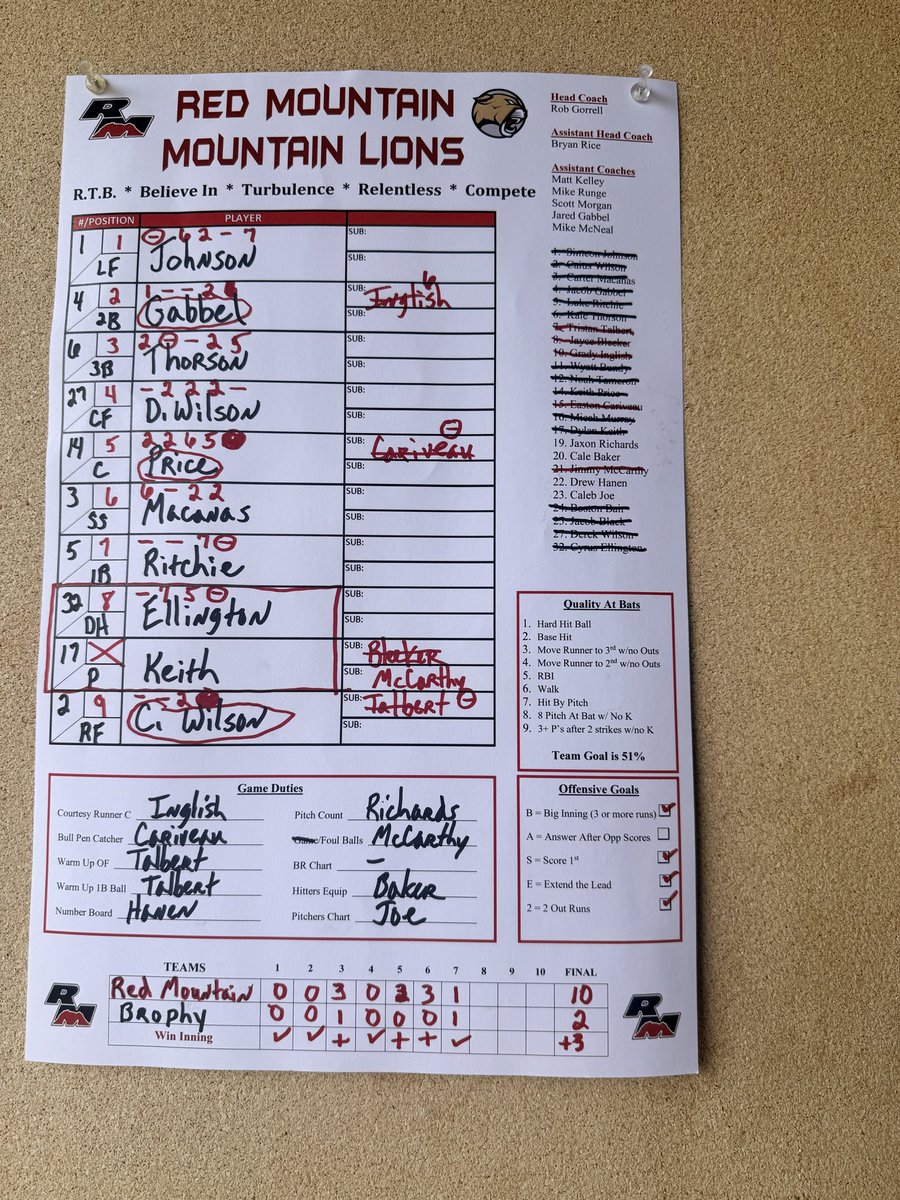 RM
RED MOUNTAIN
MOUNTAIN LIONS
R.T.B. * Believe In * Turbulence * Relentless * Compete
Head Coach
Rob Gorrell
Assistant Head Coach
Bryan Rice
Assistant Coaches
Matt Kelley
Mike Runge
Scott Morgan
Jared Gabbel
Mike McNeal
1. Simeon Johnson
2. Caius Wilson
3. Carter Macanas
4. Jacob Gabbel
5. Luke Ritchie
6. Kale Thorson
7. Tristan Talbert
8. Jayce Bleeker
10. Grady Inglish
11. Wyatt Bundy
12. Noah Tameron
14. Keith Price
15. Easton Cariveau
16. Micah Murray
17. Dylan Keith
19. Jaxon Richards
20. Cale Baker
21. Jimmy McCarthy
22. Drew Hanen
23. Caleb Joe
24. Boston Burr
25. Jacob Black
27. Derek Wilson
32. Cyrus Ellington
#/POSITION PLAYER
1 1 LF - 6 2 - 7 Johnson SUB: SUB:
4 2 2B 1 - - 2 6 Gabbel SUB: Inglish 6 SUB:
6 3 3B 2 - - 2 5 Thorson SUB: SUB:
27 4 CF - 2 2 2 - D. Wilson SUB: SUB:
14 5 C 2 2 6 5 Price SUB: Cariveau - SUB:
3 6 SS 6 - 2 2 Macanas SUB: SUB:
5 7 1B - - 7 - Ritchie SUB: SUB:
32 8 DH - 7 5 - Ellington SUB: SUB:
17 X P Keith SUB: Bleeker SUB: McCarthy
2 9 RF - - 2 C. Wilson SUB: Talbert - SUB:
Quality At Bats
1. Hard Hit Ball
2. Base Hit
3. Move Runner to 3rd w/no Outs
4. Move Runner to 2nd w/no Outs
5. RBI
6. Walk
7. Hit By Pitch
8. 8 Pitch At Bat w/ No K
9. 3+ P's after 2 strikes w/no K
Team Goal is 51%
Game Duties
Courtesy Runner C Inglish
Bull Pen Catcher Cariveau
Warm Up OF Talbert
Warm Up 1B Ball Talbert
Number Board Hanen
Pitch Count Richards
Game/Foul Balls McCarthy
BR Chart -
Hitters Equip Baker
Pitchers Chart Joe
Offensive Goals
B = Big Inning (3 or more runs) ✓
A = Answer After Opp Scores
S = Score 1st ✓
E = Extend the Lead ✓
2 = 2 Out Runs ✓
TEAMS 1 2 3 4 5 6 7 8 9 10 FINAL
Red Mountain 0 0 3 0 3 3 1 10
Brophy 0 0 1 0 0 0 1 2
Win Inning ✓ ✓ + ✓ + + ✓ +3
RM
RM